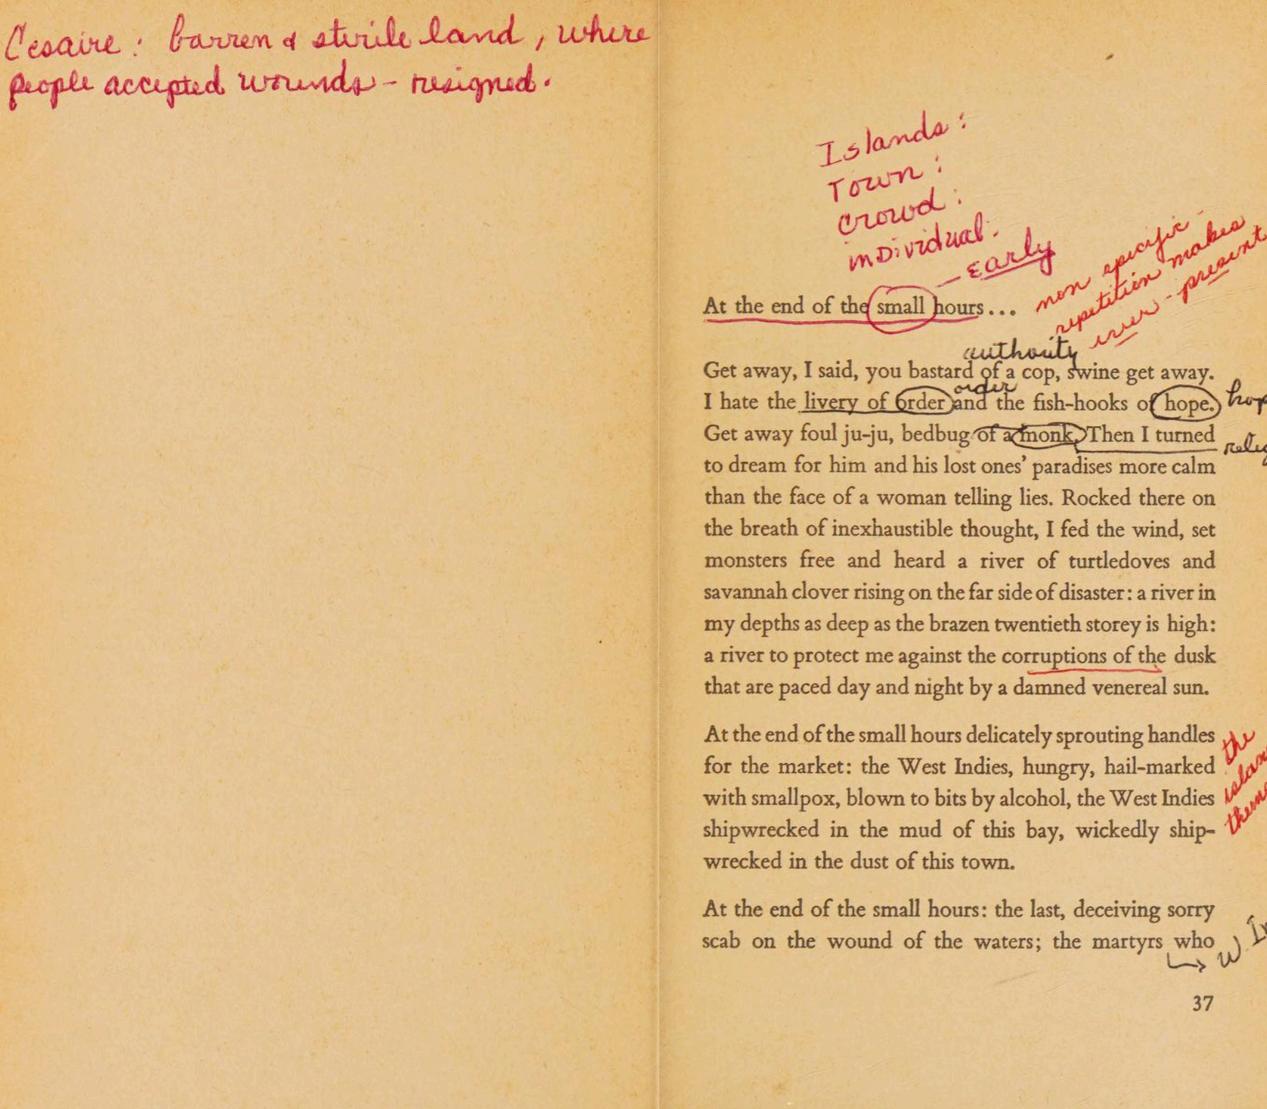 Cesaire: barren & sterile land, where
people accepted wounds – resigned.
Islands:
Town:
Crowd:
individual:
– Early
non specific –
repetition makes
ever-present
At the end of the small hours...
authority
Get away, I said, you bastard of a cop, swine get away.
order
I hate the livery of order and the fish-hooks of hope.
Get away foul ju-ju, bedbug of a monk. Then I turned
to dream for him and his lost ones' paradises more calm
than the face of a woman telling lies. Rocked there on
the breath of inexhaustible thought, I fed the wind, set
monsters free and heard a river of turtledoves and
savannah clover rising on the far side of disaster: a river in
my depths as deep as the brazen twentieth storey is high:
a river to protect me against the corruptions of the dusk
that are paced day and night by a damned venereal sun.
At the end of the small hours delicately sprouting handles
for the market: the West Indies, hungry, hail-marked
with smallpox, blown to bits by alcohol, the West Indies
shipwrecked in the mud of this bay, wickedly ship-
wrecked in the dust of this town.
the
At the end of the small hours: the last, deceiving sorry
scab on the wound of the waters; the martyrs who
37